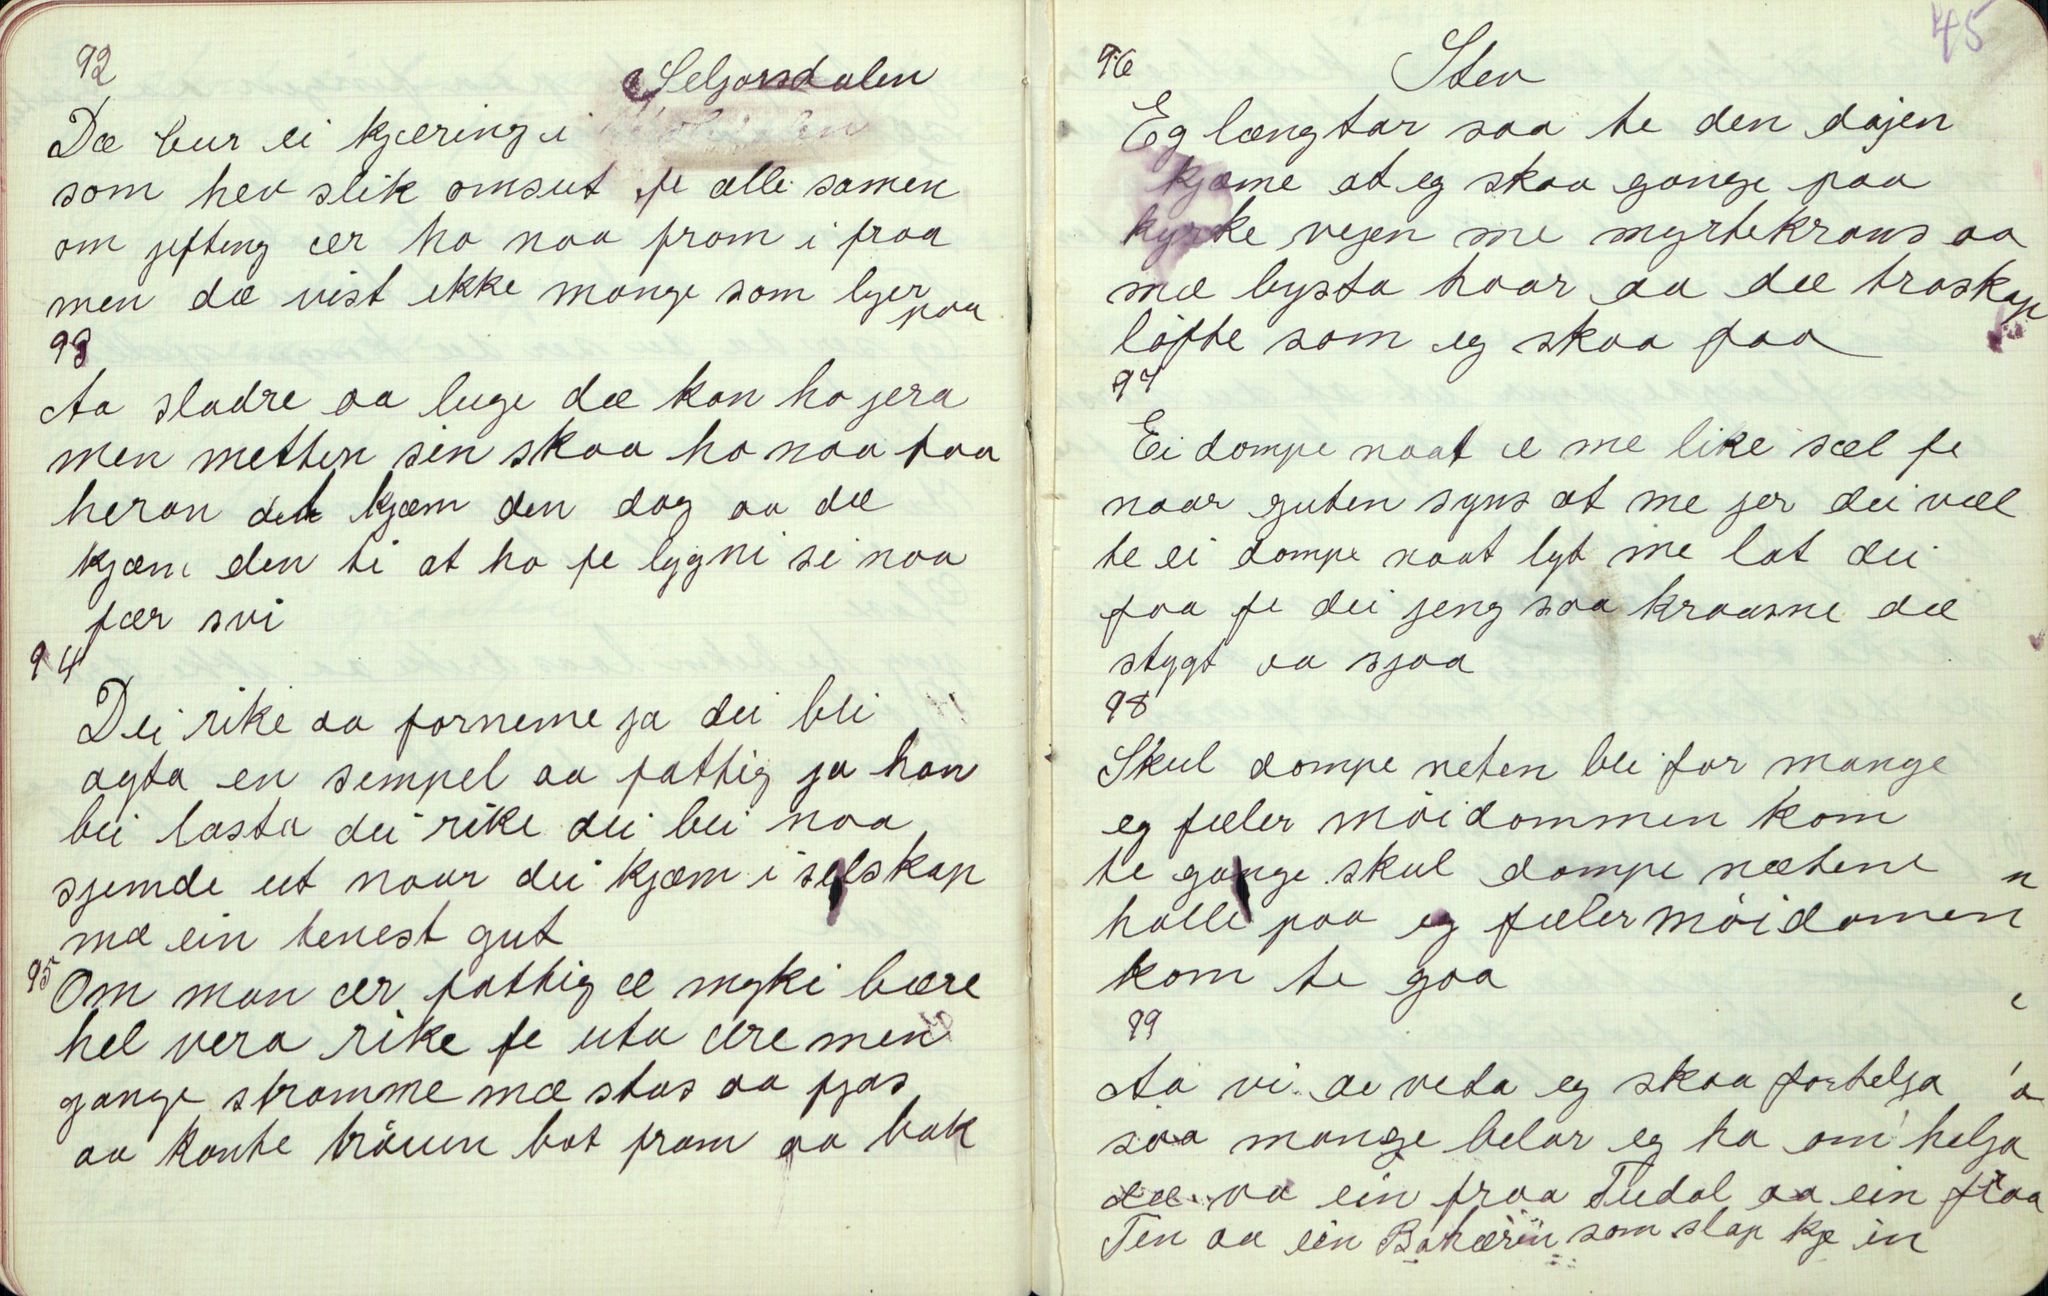 92
Seljorsdalen
Dæ bur ei kjæring i
som hev slik omsut fe alle samen
om jifting ær ho naa from i fraa
men dæ vist ikke mange som lyer
paa
93
Aa sladre aa luge dæ kan ho jera
men metten sin skaa ho naa faa
heran det kjæm den dag aa dæ
kjæm den ti at ho fe lygni si naa
fær svi
94
Dei rike aa forneme ja dei bli
agta en sempel aa fattig ja han
bli lasta dei rike dei bli naa
sjemde ut naar dei kjæm i selskap
mæ ein tenest gut
95
Om man ær fattig æ myki bære
hel vera rike fe uta ære men
gange stramme mæ stas aa fjas
aa kante trøuen bat fram aa bak
45
96
Stev
Eg længtar saa te den dajen
kjæme at eg skaa gange paa
kyrke vejen me myrtekrans aa
mæ lysta haar aa dæ traskap
løfte som eg skaa faa
97
Ei dompe naat æ me like sæl fe
naar guten syns at me jer dei væl
te ei dompe naat lyt me lat dei
faa fe dei jeng saa kraasne dæ
stygt aa sjaa
98
Skul dompe neten bli for mange
eg fæler møidommen kom
te gange skul dompe nætene
halle paa eg fæler møidomen
kom te gaa
99
Aa vi de veta eg skaa fortelja
saa mange belar eg ha om helja
dæ va ein fraa Tudal aa ein fraa
Tin aa ein Bøhæring som slap kje in